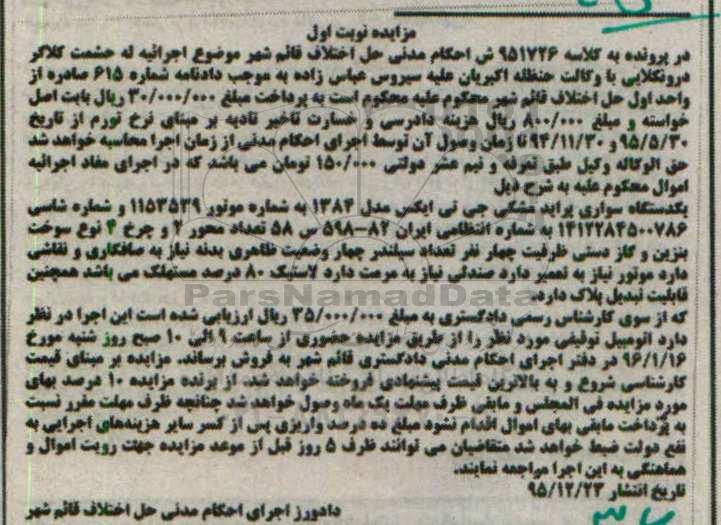 مزایده نوبت اول
در پرونده به کلاسه ۹۵۱۷۲۶ ش احکام مدنی حل اختلاف قائم شهر موضوع اجرائیه له حشمت کلاگر
درونکلایی با وکالت حنظله اکبریان علیه سیروس عباس زاده به موجب دادنامه شماره ۶۱۵ صادره از
واحد اول حل اختلاف قائم شهر محکوم علیه محکوم است به پرداخت مبلغ ۳۰/۰۰۰/۰۰۰ ریال بابت اصل
خواسته و مبلغ ۸۰۰/۰۰۰ ریال هزینه دادرسی و خسارت تاخیر تادیه بر مبنای نرخ تورم از تاریخ
۹۵/۵/۳۰ و ۹۴/۱۱/۳۰ تا زمان وصول آن توسط اجرای احکام مدنی از زمان اجرا محاسبه خواهد شد
حق الوکاله وکیل طبق تعرفه و نیم عشر دولتی ۱۵۰/۰۰۰ تومان می باشد که در اجرای مفاد اجرائیه
اموال محکوم علیه به شرح ذیل
یکدستگاه سواری پراید مشکی جی تی ایکس مدل ۱۳۸۴ به شماره موتور ۱۱۵۳۵۳۹ و شماره شاسی
۱۴۱۲۲۸۴۵۰۰۷۸۶ به شماره انتظامی ایران ۸۲-۵۹۸ س ۵۸ تعداد محور ۲ و چرخ ۴ نوع سوخت
بنزین و گاز دستی ظرفیت چهار نفر تعداد سیلندر چهار وضعیت ظاهری بدنه نیاز به صافکاری و نقاشی
دارد موتور نیاز به تعمیر دارد صندلی نیاز به مرمت دارد لاستیک ۸۰ درصد مستهلک می باشد همچنین
قابلیت تبدیل پلاک دارد.
که از سوی کارشناس رسمی دادگستری به مبلغ ۳۵/۰۰۰/۰۰۰ ریال ارزیابی شده است این اجرا در نظر
دارد اتومبیل توقیفی مورد نظر را از طریق مزایده حضوری از ساعت ۹ الی ۱۰ صبح روز شنبه مورخ
۹۶/۱/۱۶ در دفتر اجرای احکام مدنی دادگستری قائم شهر به فروش برساند. مزایده بر مبنای قیمت
کارشناسی شروع و به بالاترین قیمت پیشنهادی فروخته خواهد شد. از برنده مزایده ۱۰ درصد بهای
مورد مزایده فی المجلس و مابقی ظرف مهلت یک ماه وصول خواهد شد چنانچه ظرف مهلت مقرر نسبت
به پرداخت مابقی بهای اموال اقدام نشود مبلغ ده درصد واریزی پس از کسر سایر هزینه‌های اجرایی به
نفع دولت ضبط خواهد شد متقاضیان می توانند ظرف ۵ روز قبل از موعد مزایده جهت رویت اموال و
هماهنگی به این اجرا مراجعه نمایند.
تاریخ انتشار ۹۵/۱۲/۲۳
دادورز اجرای احکام مدنی حل اختلاف قائم شهر
ParsNamadData